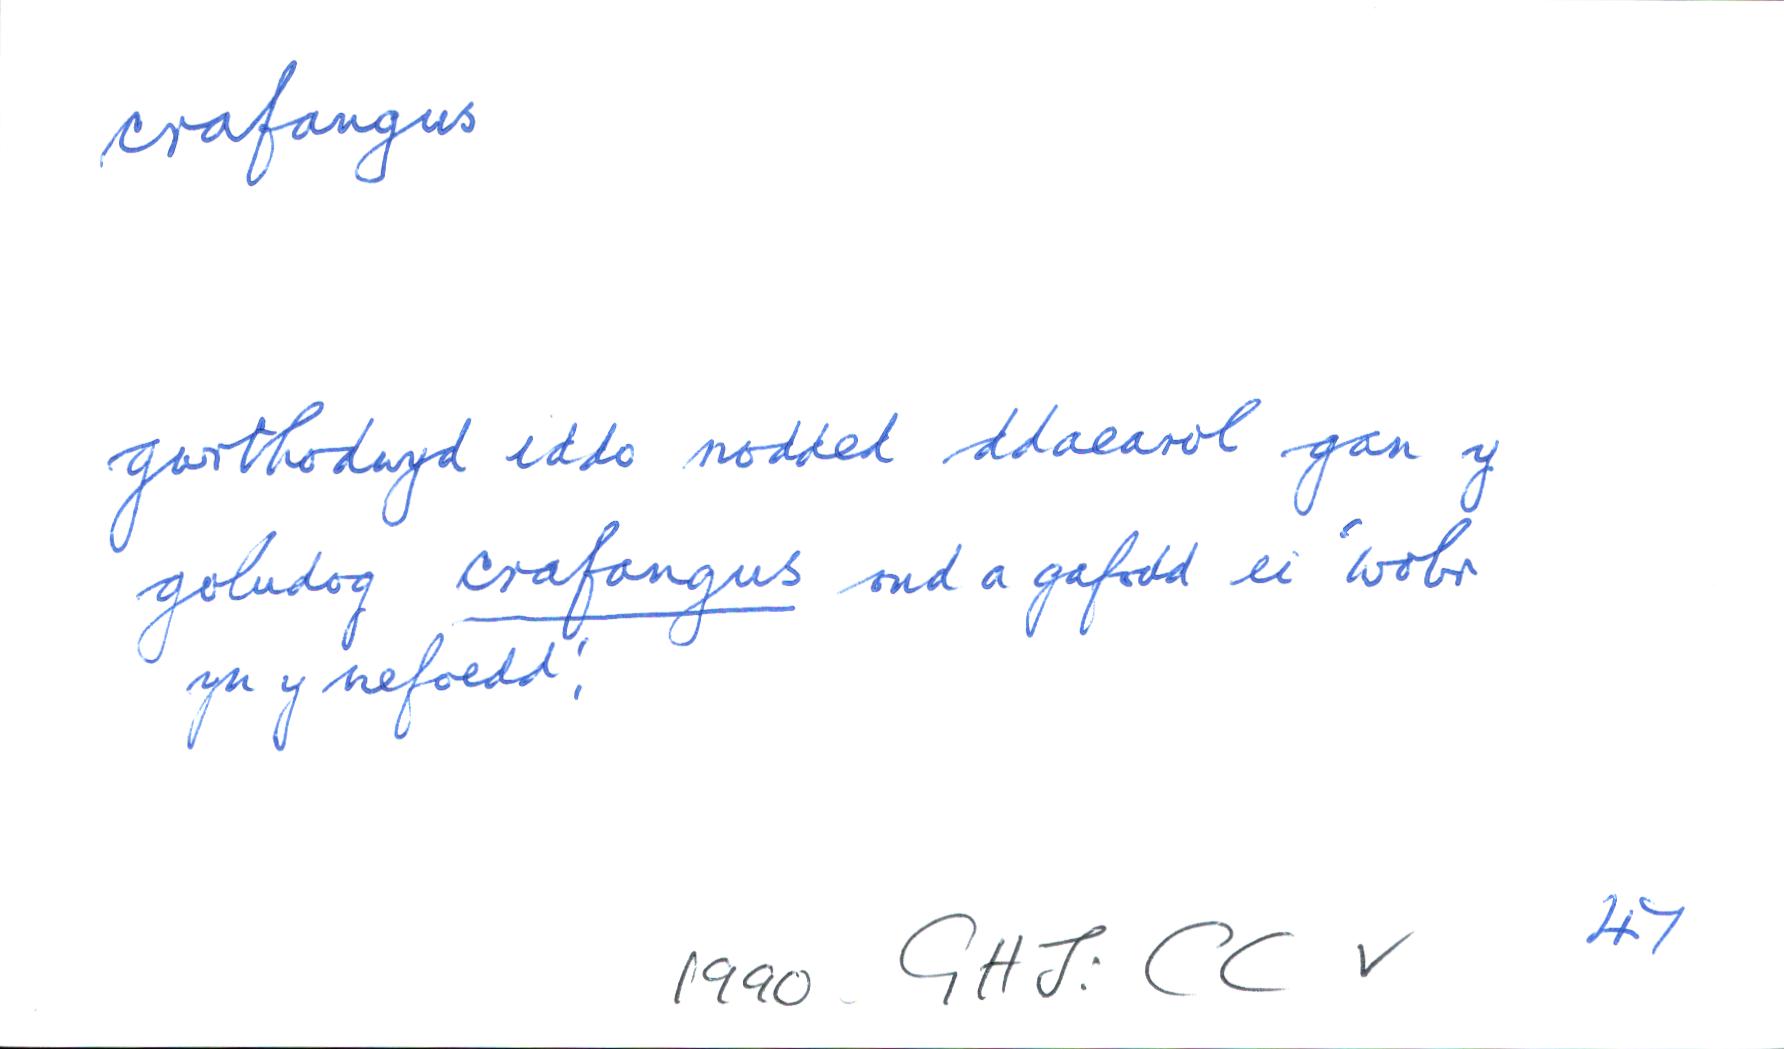 crafangus
gwrthodwyd iddo nodded ddaearol gan y
goludog crafangus ond a gafodd ei 'wobr
yn y nefoedd'.
1990. GHJ: CC V 47